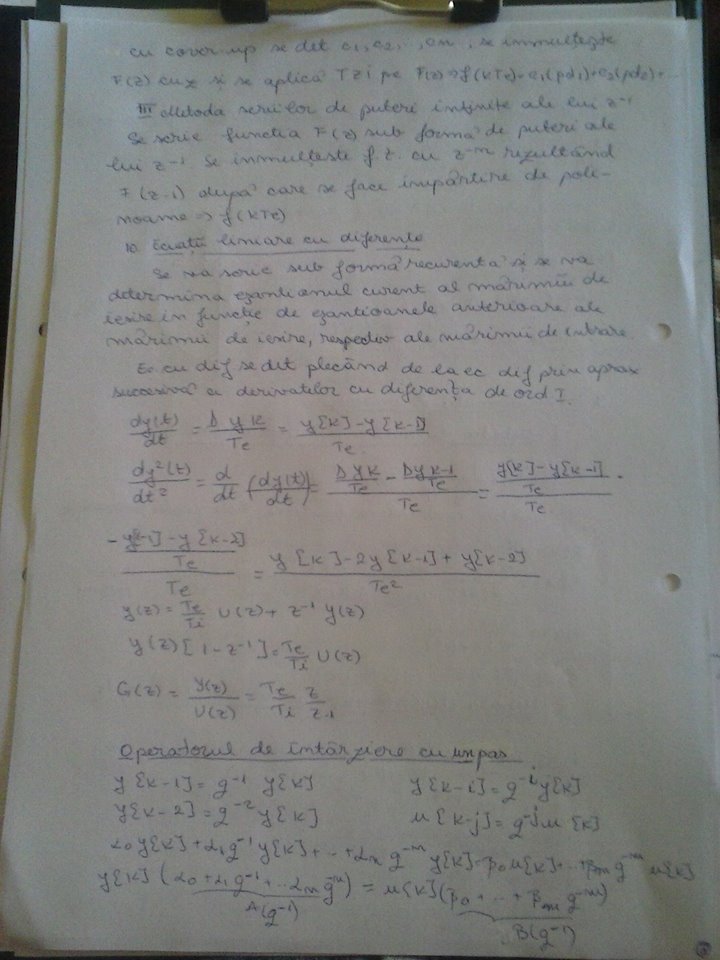 cu cover-up se det c1, c2, .., cn, se înmulțește
F(z) cu z și se aplică TZI pe F(z) ⇒ f(kTe) = c1(pd1)+c2(pd2)+..
III Metoda seriilor de puteri infinite ale lui z^-1
Se scrie funcția F(z) sub formă de puteri ale
lui z^-1. Se înmulțește f.t. cu z^-m rezultând
F(z-1) după care se face împărțire de poli-
noame ⇒ f(kTe)
10. Ecuații liniare cu diferențe
Se va scrie sub formă recurentă și se va
determina eșantionul curent al mărimii de
ieșire în funcție de eșantioanele anterioare ale
mărimii de ieșire, respectiv ale mărimii de intrare
Ec cu dif se det plecând de la ec dif prin aprox
succesivă a derivatelor cu diferența de ord I.
dy(t)/dt = Δyk/Te = (y[k]-y[k-1])/Te
dy²(t)/dt² = d/dt (dy(t)/dt) = (Δyk/Te - Δyk-1/Te)/Te = ((y[k]-y[k-1])/Te)/Te -
- ((y[k-1]-y[k-2])/Te)/Te = (y[k]-2y[k-1]+y[k-2])/Te²
y(z) = Te/Ti U(z) + z^-1 y(z)
y(z)[1-z^-1] = Te/Ti U(z)
G(z) = Y(z)/U(z) = Te/Ti z/z-1
Operatorul de întârziere cu un pas
y[k-1] = q^-1 y[k] y[k-i] = q^-i y[k]
y[k-2] = q^-2 y[k] u[k-j] = q^-j u[k]
α0 y[k] + α1 q^-1 y[k] + .. + αn q^-n y[k] = β0 u[k] + .. + βm q^-m u[k]
y[k] (α0 + α1 q^-1 + .. αn q^-n) = u[k] (β0 + .. + βm q^-m)
A(q^-1) B(q^-1)